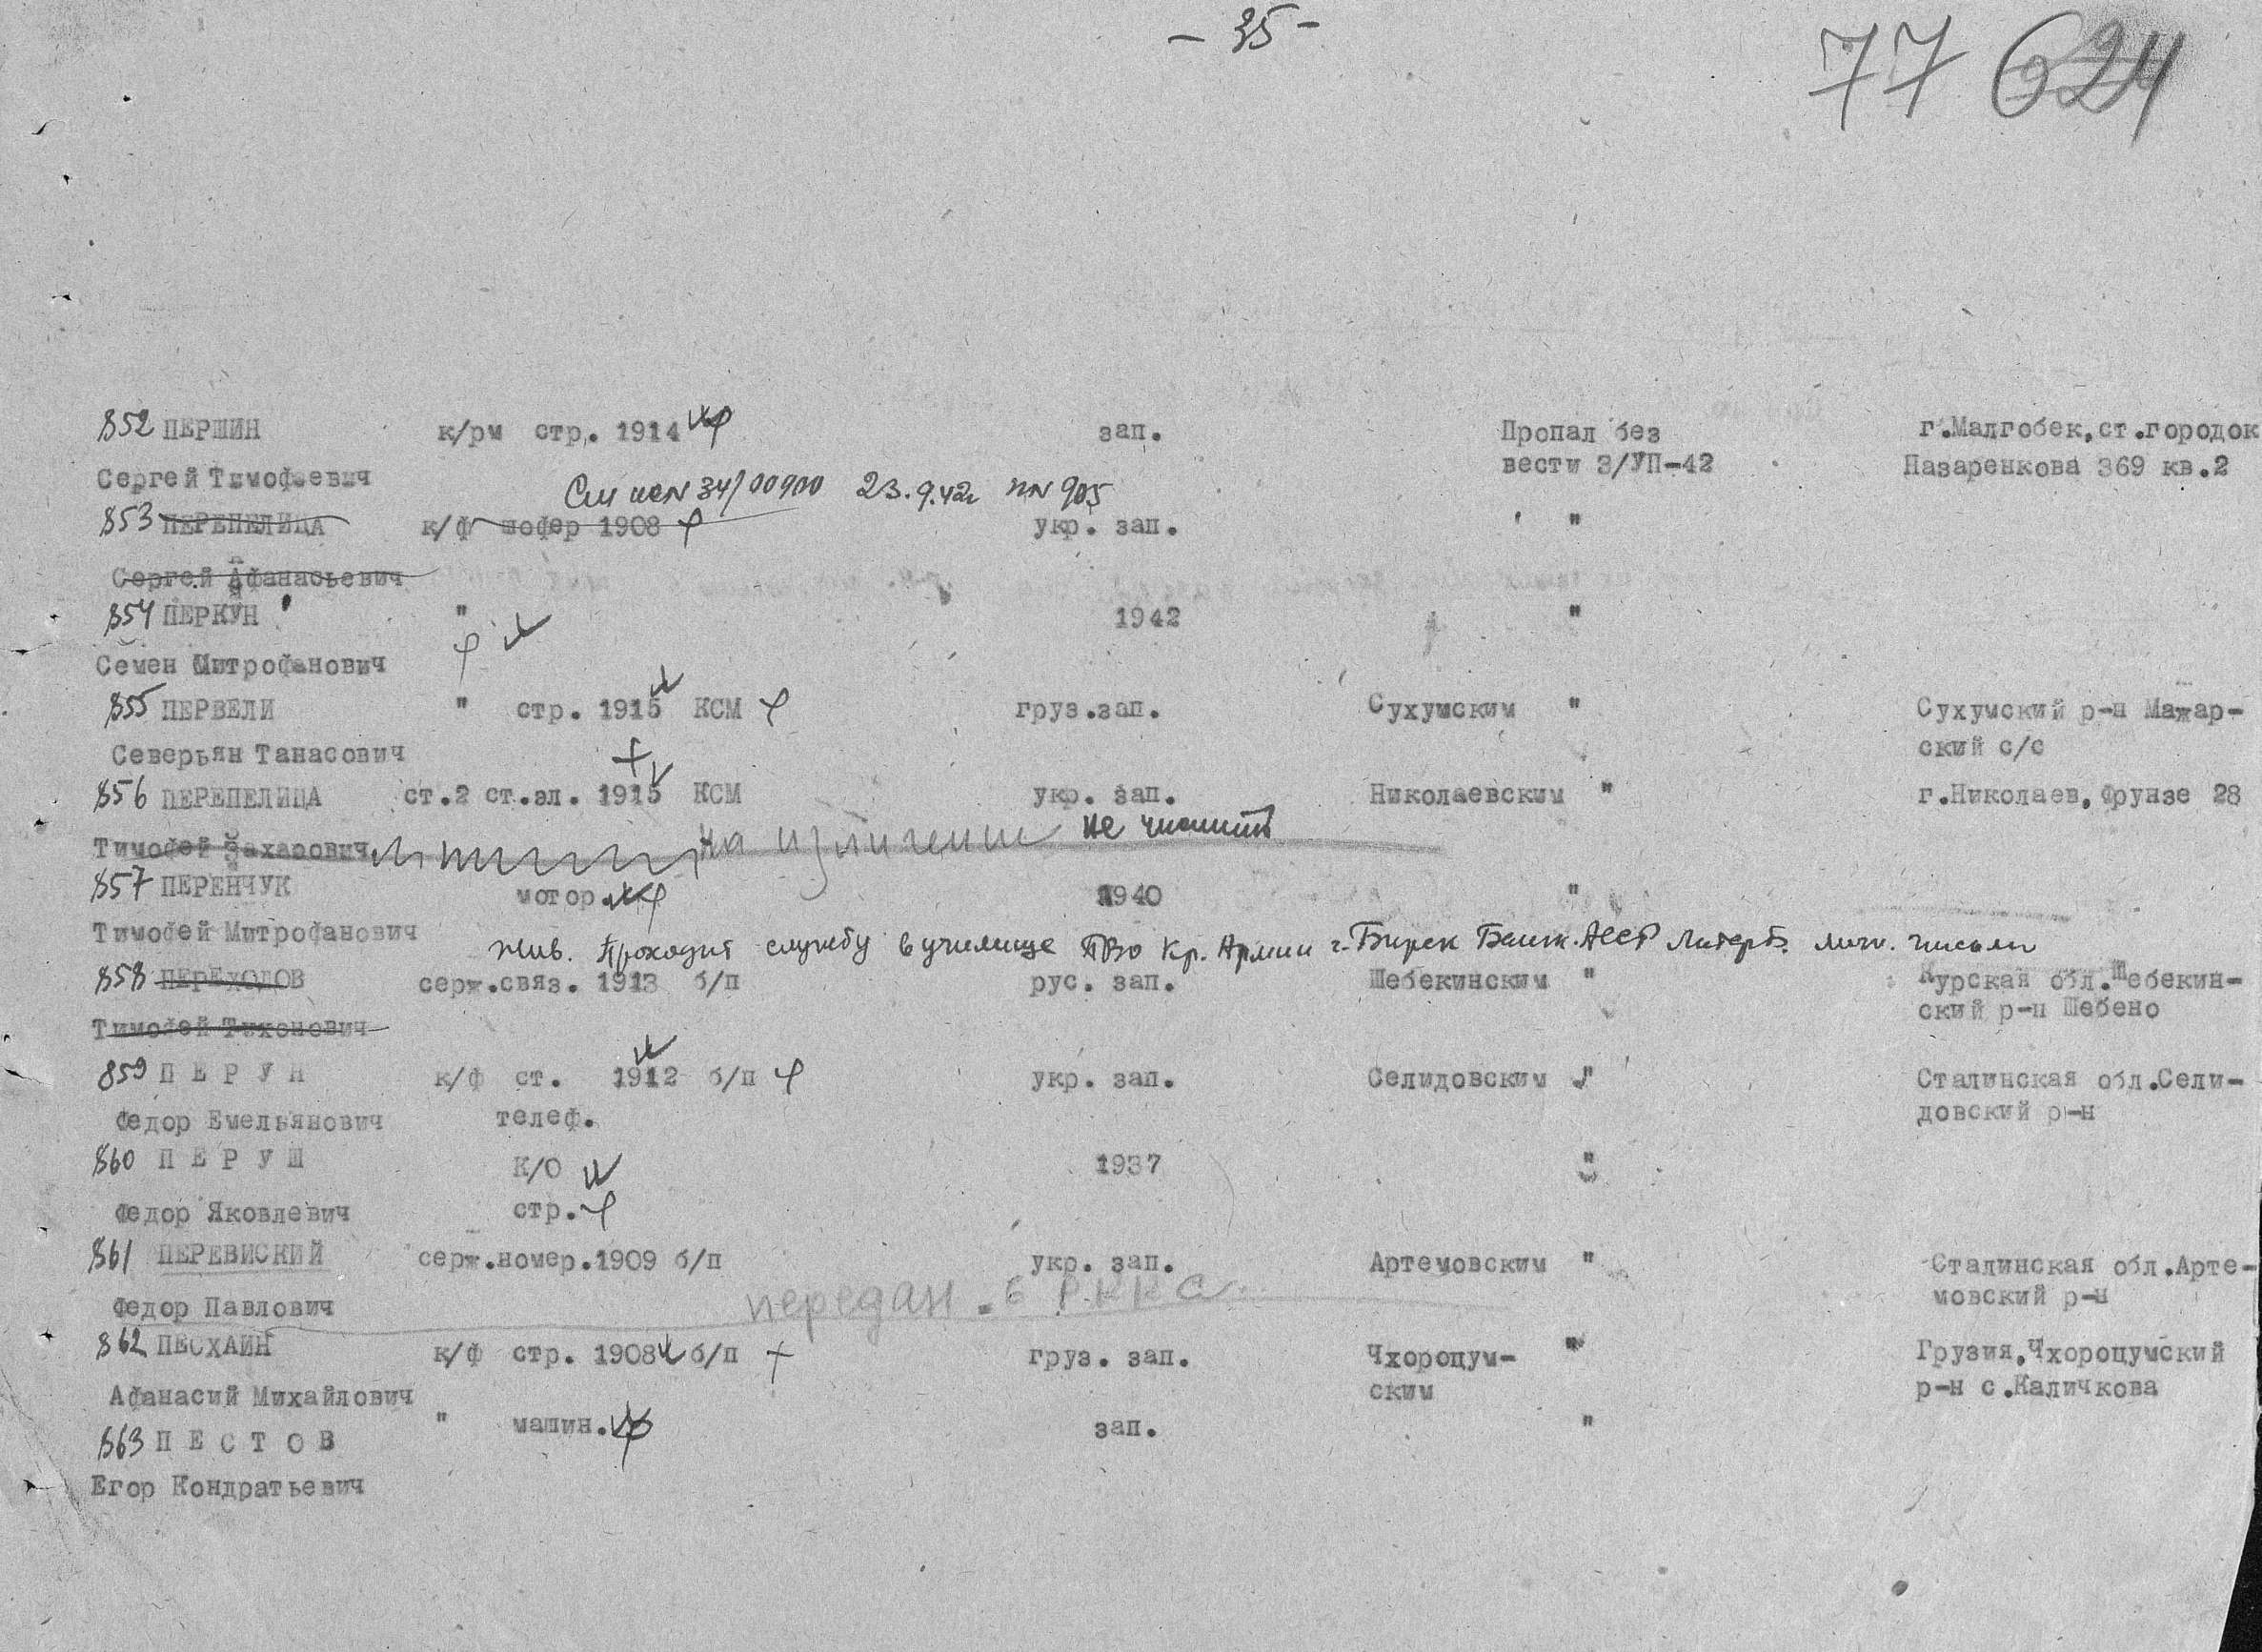 - 35 -
77 624
852 ПЕРШИН к/рм стр. 1914 зап. Пропал без г.Малгобек,ст.городок
вести 3/УП-42 Назаренкова 369 кв.2
Сергей Тимофеевич
23.9.42г
853 ПЕРЕПЕЛИЦА к/ф шофер 1908 укр. зап. "
Сергей Афанасьевич
854 ПЕРКУН " 1942 "
Семен Митрофанович
855 ПЕРВЕЛИ " стр. 1915 КСМ груз.зап. Сухумским " Сухумский р-н Мажар-
Северьян Танасович ский с/с
856 ПЕРЕПЕЛИЦА ст.2 ст.эл. 1915 КСМ укр. зап. Николаевским " г.Николаев,Фрунзе 28
Тимофей Захарович на излечении не числится
857 ПЕРЕНЧУК мотор. 1940 "
Тимофей Митрофанович
жив. Проходит службу в училище ПВО Кр. Армии г. Бирск Башк. АССР Литер Б. личн. письмо
858 ПЕРЕХОДОВ серж.связ. 1913 б/п рус. зап. Шебекинским " Курская обл.Шебекин-
ский р-н Шебено
Тимофей Тихонович
859 П Е Р У Н к/ф ст. 1912 б/п укр. зап. Селидовским " Сталинская обл.Сели-
Федор Емельянович телеф. довский р-н
860 П Е Р У Ш К/О 1937 "
Федор Яковлевич стр.
861 ПЕРЕВИСКИЙ серж.номер.1909 б/п укр. зап. Артемовским " Сталинская обл.Арте-
Федор Павлович передан в РККА мовский р-н
862 ПЕСХАИН к/ф стр. 1908 б/п груз. зап. Чхороцум- " Грузия,Чхороцумский
ским р-н с.Каличкова
Афанасий Михайлович
863 П Е С Т О В " машин. зап. "
Егор Кондратьевич